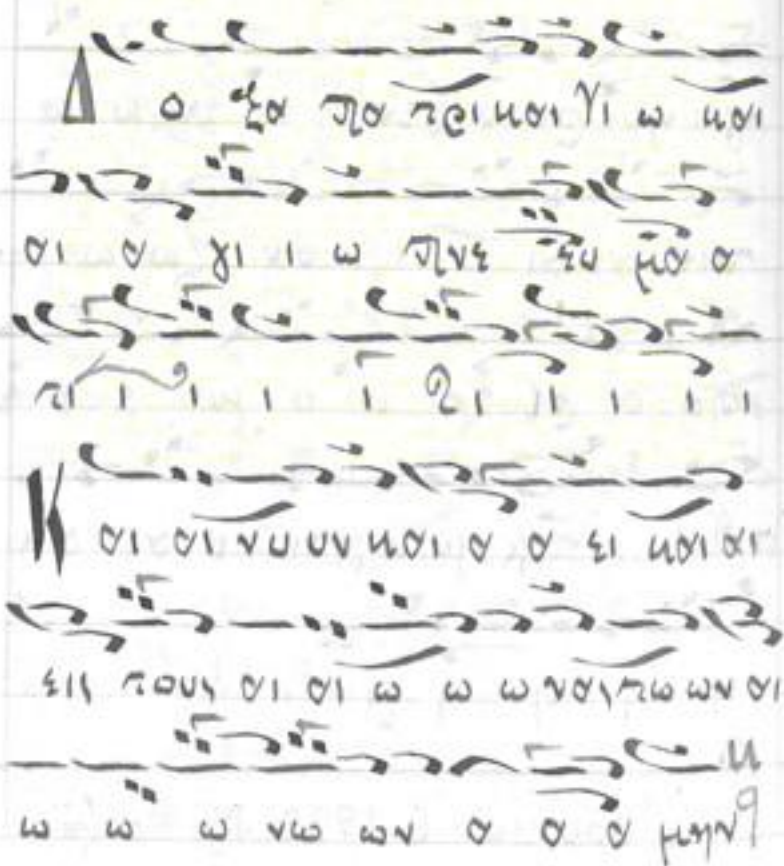 Δ ο ξα Πα τρι και Υι ω και
αι α γι ι ω Πνε ευ μα α
τι ι ι ι ι ι ι ι ι ι
Κ αι αι νυ υν και α α ει και αι
εις τους αι αι ω ω ω νας τω ων αι
ω ω ω νω ων α α α μην